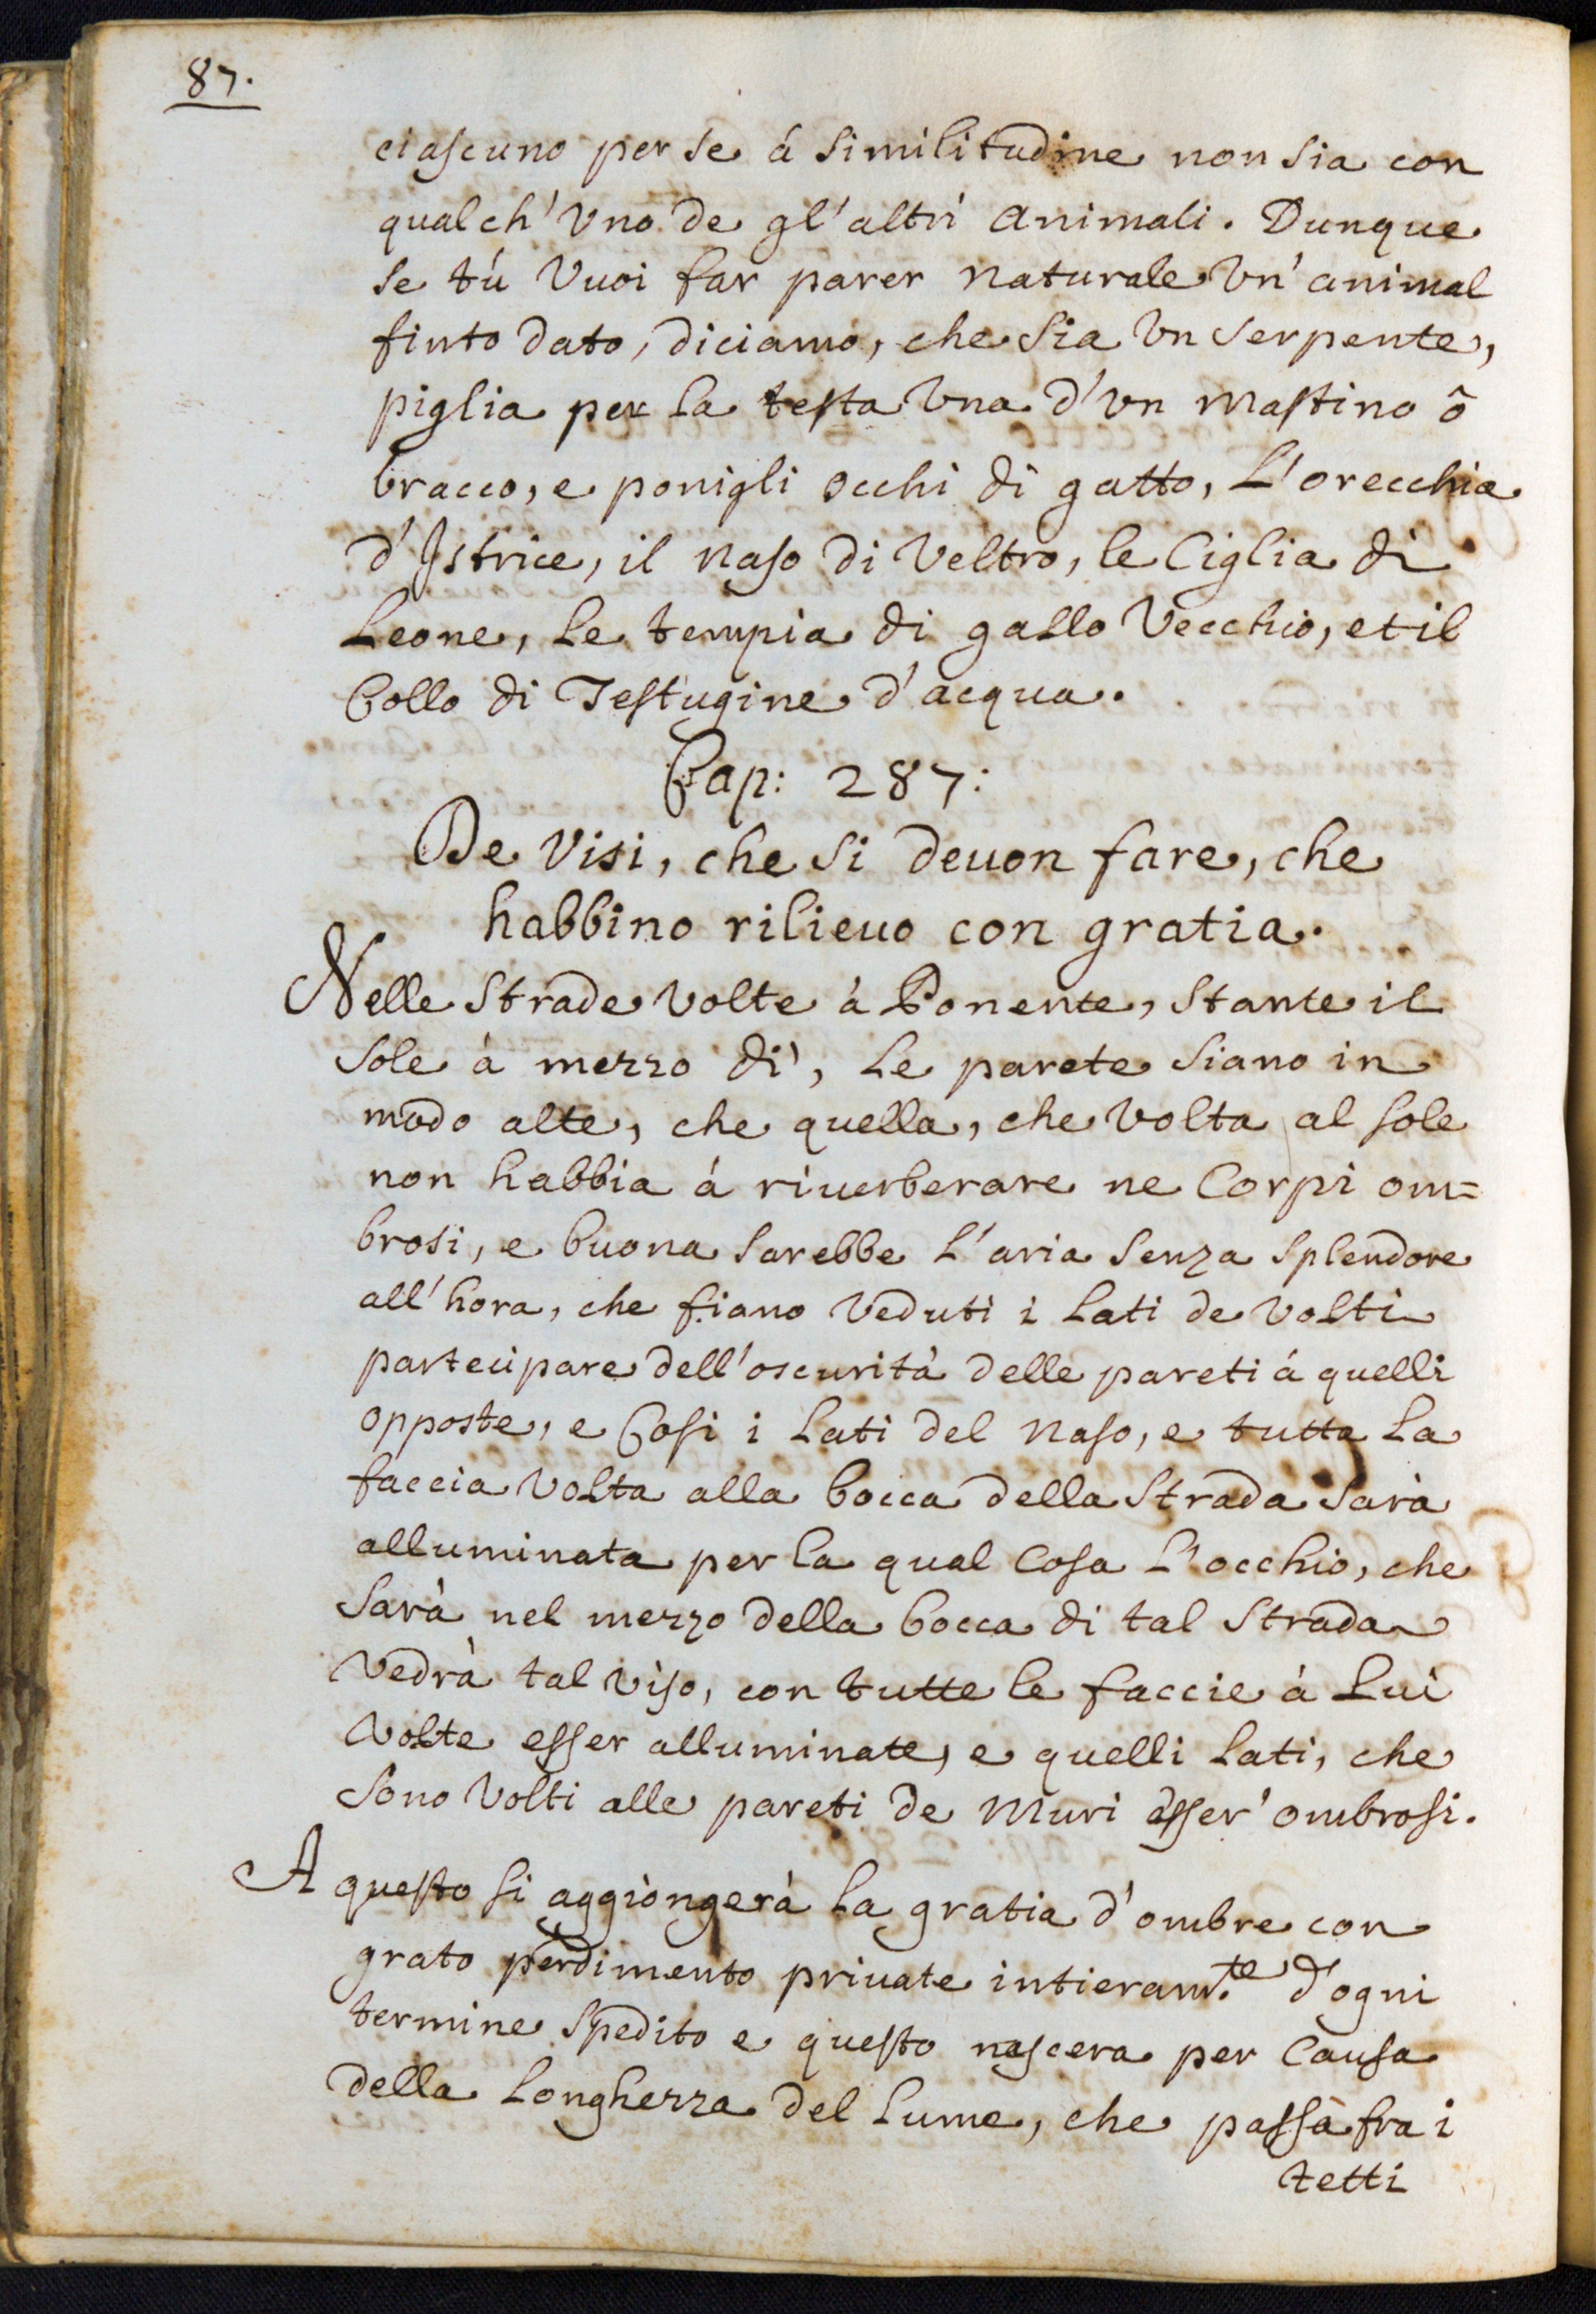 87.
ciascuno per se á similitudine non sia con
qualch' Vno de gl'altri animali. Dunque
se tú Vuoi far parer naturale Vn' animal
finto dato, diciamo, che sia Vn serpente,
piglia per la testa Vna d'Vn mastino ô
bracco, e ponigli occhi di gatto, L'orecchia
d'Istrice, il naso di Veltro, le Ciglia di
Leone, Le tempia di gallo Vecchio, et il
Collo di Testugine d'acqua.
Cap: 287:
De Visi, che si deuon fare, che
habbino rilieuo con gratia.
Nelle Strade Volte à Ponente, Stante il
sole à mezzo dì, Le parete siano in
modo alte, che quella, che Volta al sole
non habbia á riuerberare ne Corpi om=
brosi, e buona sarebbe L'aria senza splendore
all'hora, che fiano Veduti i Lati de Volti
partecipare dell'oscurità delle pareti á quelli
opposte, e Cosi i Lati del naso, e tutta La
faccia Volta alla bocca della Strada sarà
alluminata per la qual Cosa L'occhio, che
sarà nel mezzo della bocca di tal Strada
Vedrà tal Viso, con tutte le faccie á Lui
Volte esser alluminate, e quelli Lati, che
sono Volti alle pareti de Muri esser' ombrosi.
A questo si aggiongerà La gratia d'ombre con
grato perdimento priuate intieram.te d'ogni
termine spedito e questo nascera per Causa
della Longhezza del Lume, che passa fra i
tetti